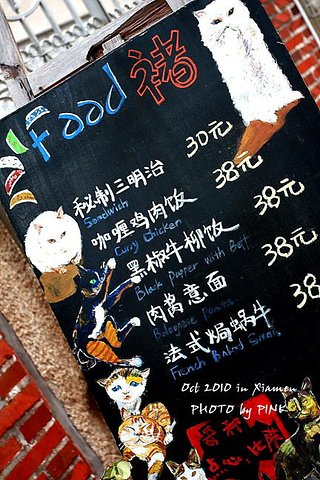 food 褚
秘制三明治 30元
Sandwich
咖喱鸡肉饭 38元
Curry Chicken
黑椒牛柳饭 38元
Black Pepper with Beef
肉酱意面 38元
Bolognese
法式焗蜗牛 38
French Baked Snail
Oct 2010 in Xiamen
PHOTO by PINK